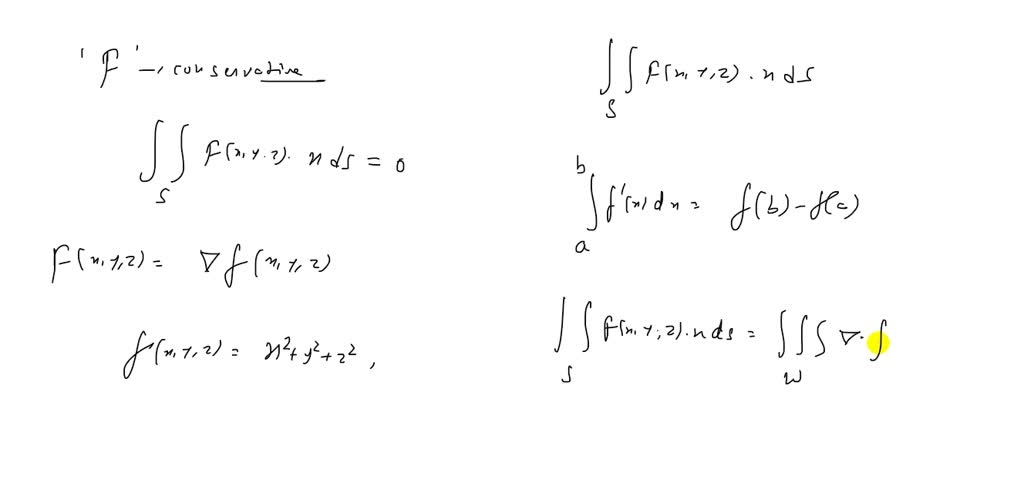 'F' → conservative
∫∫_S F(x, y, z). n ds = 0
F(x, y, z) = ∇f(x, y, z)
f(x, y, z) = x²+ y²+ z² ,
∫∫_S F(x, y, z) . n ds
∫_a^b f'(x) dx = f(b) - f(a)
∫∫_S F(x, y, z) . n ds = ∫∫∫_W ∇. f